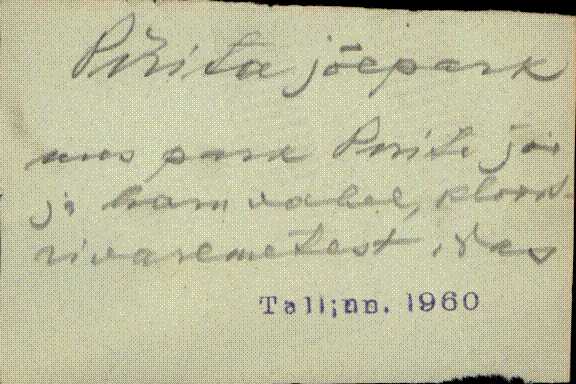 Pirita jõepark
uus park Pirita jõe
ja tram vahel, kloost-
rivaremetest idas
Tallinn. 1960